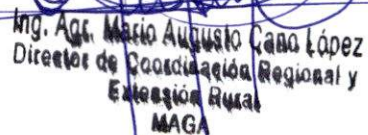 Ing. Agr. Mario Augusto Cano López
Director de Coordinación Regional y
Extensión Rural
MAGA